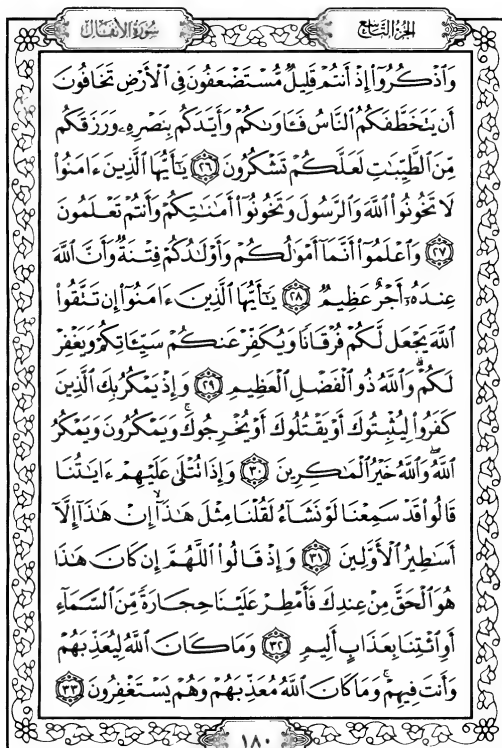 سُورَةُ الأَنفَالِ الجُزْءُ التَّاسِعُ
وَٱذْكُرُوٓا۟ إِذْ أَنتُمْ قَلِيلٌ مُّسْتَضْعَفُونَ فِى ٱلْأَرْضِ تَخَافُونَ
أَن يَتَخَطَّفَكُمُ ٱلنَّاسُ فَـَٔاوَىٰكُمْ وَأَيَّدَكُم بِنَصْرِهِۦ وَرَزَقَكُم
مِّنَ ٱلطَّيِّبَـٰتِ لَعَلَّكُمْ تَشْكُرُونَ ٢٦ يَـٰٓأَيُّهَا ٱلَّذِينَ ءَامَنُوا۟
لَا تَخُونُوا۟ ٱللَّهَ وَٱلرَّسُولَ وَتَخُونُوٓا۟ أَمَـٰنَـٰتِكُمْ وَأَنتُمْ تَعْلَمُونَ
٢٧ وَٱعْلَمُوٓا۟ أَنَّمَآ أَمْوَٰلُكُمْ وَأَوْلَـٰدُكُمْ فِتْنَةٌ وَأَنَّ ٱللَّهَ
عِندَهُۥٓ أَجْرٌ عَظِيمٌ ٢٨ يَـٰٓأَيُّهَا ٱلَّذِينَ ءَامَنُوٓا۟ إِن تَتَّقُوا۟
ٱللَّهَ يَجْعَل لَّكُمْ فُرْقَانًا وَيُكَفِّرْ عَنكُمْ سَيِّـَٔاتِكُمْ وَيَغْفِرْ
لَكُمْ ۗ وَٱللَّهُ ذُو ٱلْفَضْلِ ٱلْعَظِيمِ ٢٩ وَإِذْ يَمْكُرُ بِكَ ٱلَّذِينَ
كَفَرُوا۟ لِيُثْبِتُوكَ أَوْ يَقْتُلُوكَ أَوْ يُخْرِجُوكَ ۚ وَيَمْكُرُونَ وَيَمْكُرُ
ٱللَّهُ ۖ وَٱللَّهُ خَيْرُ ٱلْمَـٰكِرِينَ ٣٠ وَإِذَا تُتْلَىٰ عَلَيْهِمْ ءَايَـٰتُنَا
قَالُوا۟ قَدْ سَمِعْنَا لَوْ نَشَآءُ لَقُلْنَا مِثْلَ هَـٰذَآ ۙ إِنْ هَـٰذَآ إِلَّآ
أَسَـٰطِيرُ ٱلْأَوَّلِينَ ٣١ وَإِذْ قَالُوا۟ ٱللَّهُمَّ إِن كَانَ هَـٰذَا
هُوَ ٱلْحَقَّ مِنْ عِندِكَ فَأَمْطِرْ عَلَيْنَا حِجَارَةً مِّنَ ٱلسَّمَآءِ
أَوِ ٱئْتِنَا بِعَذَابٍ أَلِيمٍ ٣٢ وَمَا كَانَ ٱللَّهُ لِيُعَذِّبَهُمْ
وَأَنتَ فِيهِمْ ۚ وَمَا كَانَ ٱللَّهُ مُعَذِّبَهُمْ وَهُمْ يَسْتَغْفِرُونَ ٣٣
١٨٠